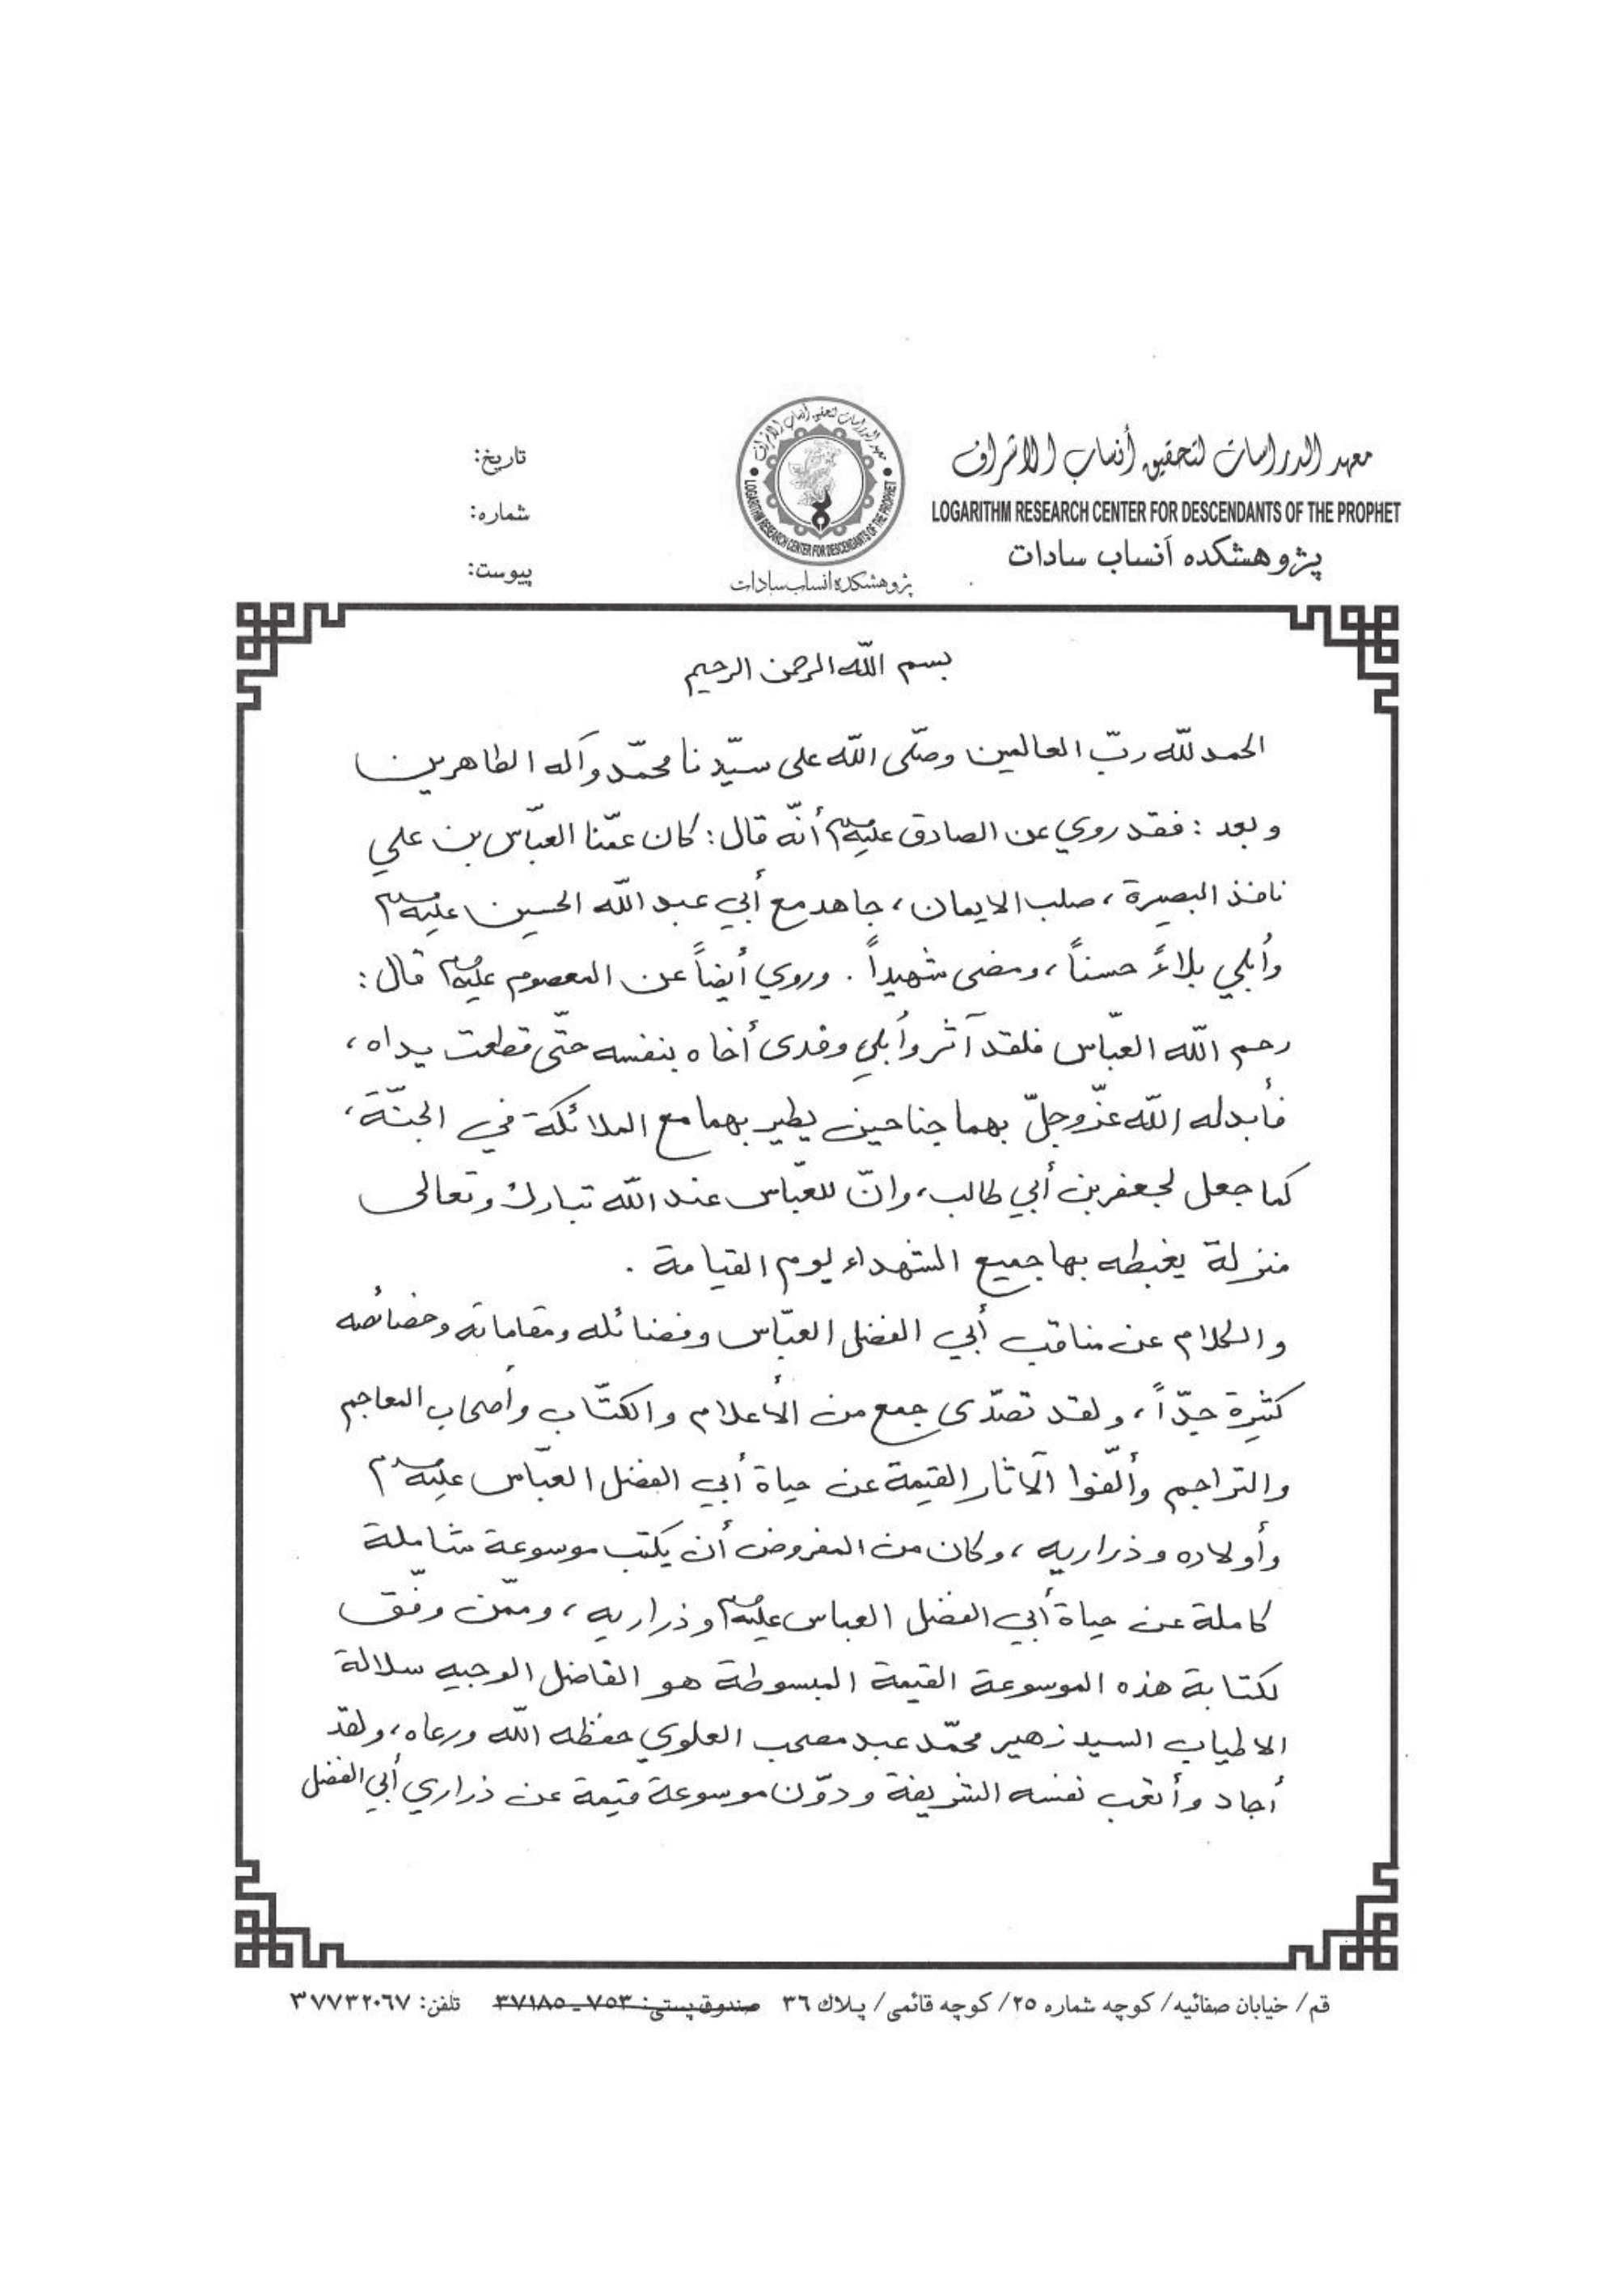 معهد الدراسات لتحقيق أنساب الاشراف
LOGARITHM RESEARCH CENTER FOR DESCENDANTS OF THE PROPHET
پژوهشكده أنساب سادات
معهد الدراسات لتحقيق أنساب الاشراف
LOGARITHM RESEARCH CENTER FOR DESCENDANTS OF THE PROPHET
پژوهشكده انساب سادات
تاريخ:
شماره:
پيوست:
بسم الله الرحمن الرحيم
الحمد لله ربّ العالمين وصلّى الله على سيّدنا محمّد وآله الطاهرين
وبعد : فقد روي عن الصادق عليه‌السلام أنّه قال : كان عمّنا العبّاس بن علي
نافذ البصيرة ، صلب الايمان ، جاهد مع أبي عبد الله الحسين عليه‌السلام
وأُبلي بلاءً حسناً ، ومضى شهيداً . وروي أيضاً عن المعصوم عليه‌السلام قال :
رحم الله العبّاس فلقد آثر وأُبلي وفدى أخاه بنفسه حتّى قطعت يداه ،
فأبدله الله عزّوجلّ بهما جناحين يطير بهما مع الملائكة في الجنّة ،
كما جعل لجعفر بن أبي طالب ، وانّ للعبّاس عند الله تبارك وتعالى
منزلة يغبطه بها جميع الشهداء يوم القيامة .
والكلام عن مناقب أبي الفضل العبّاس وفضائله ومقاماته وخصائصه
كثيرة جدّاً ، ولقد تصدّى جمع من الأعلام والكتّاب وأصحاب المعاجم
والتراجم وألّفوا الآثار القيّمة عن حياة أبي الفضل العبّاس عليه‌السلام
وأولاده وذراريه ، وكان من المفروض أن يكتب موسوعة شاملة
كاملة عن حياة أبي الفضل العباس عليه‌السلام وذراريه ، وممّن وفّق
لكتابة هذه الموسوعة القيمة المبسوطة هو الفاضل الوجيه سلالة
الاطياب السيد زهير محمّد عبد مصحب العلوي حفظه الله ورعاه ، ولقد
أجاد وأتعب نفسه الشريفة ودوّن موسوعة قيّمة عن ذراري أبي الفضل
قم / خيابان صفائيه / كوچه شماره ٢٥ / كوچه قائمى / پلاك ٣٦ صندوق پستى: ٧٥٣ - ٣٧١٨٥ تلفن: ٣٧٧٣٢٠٦٧